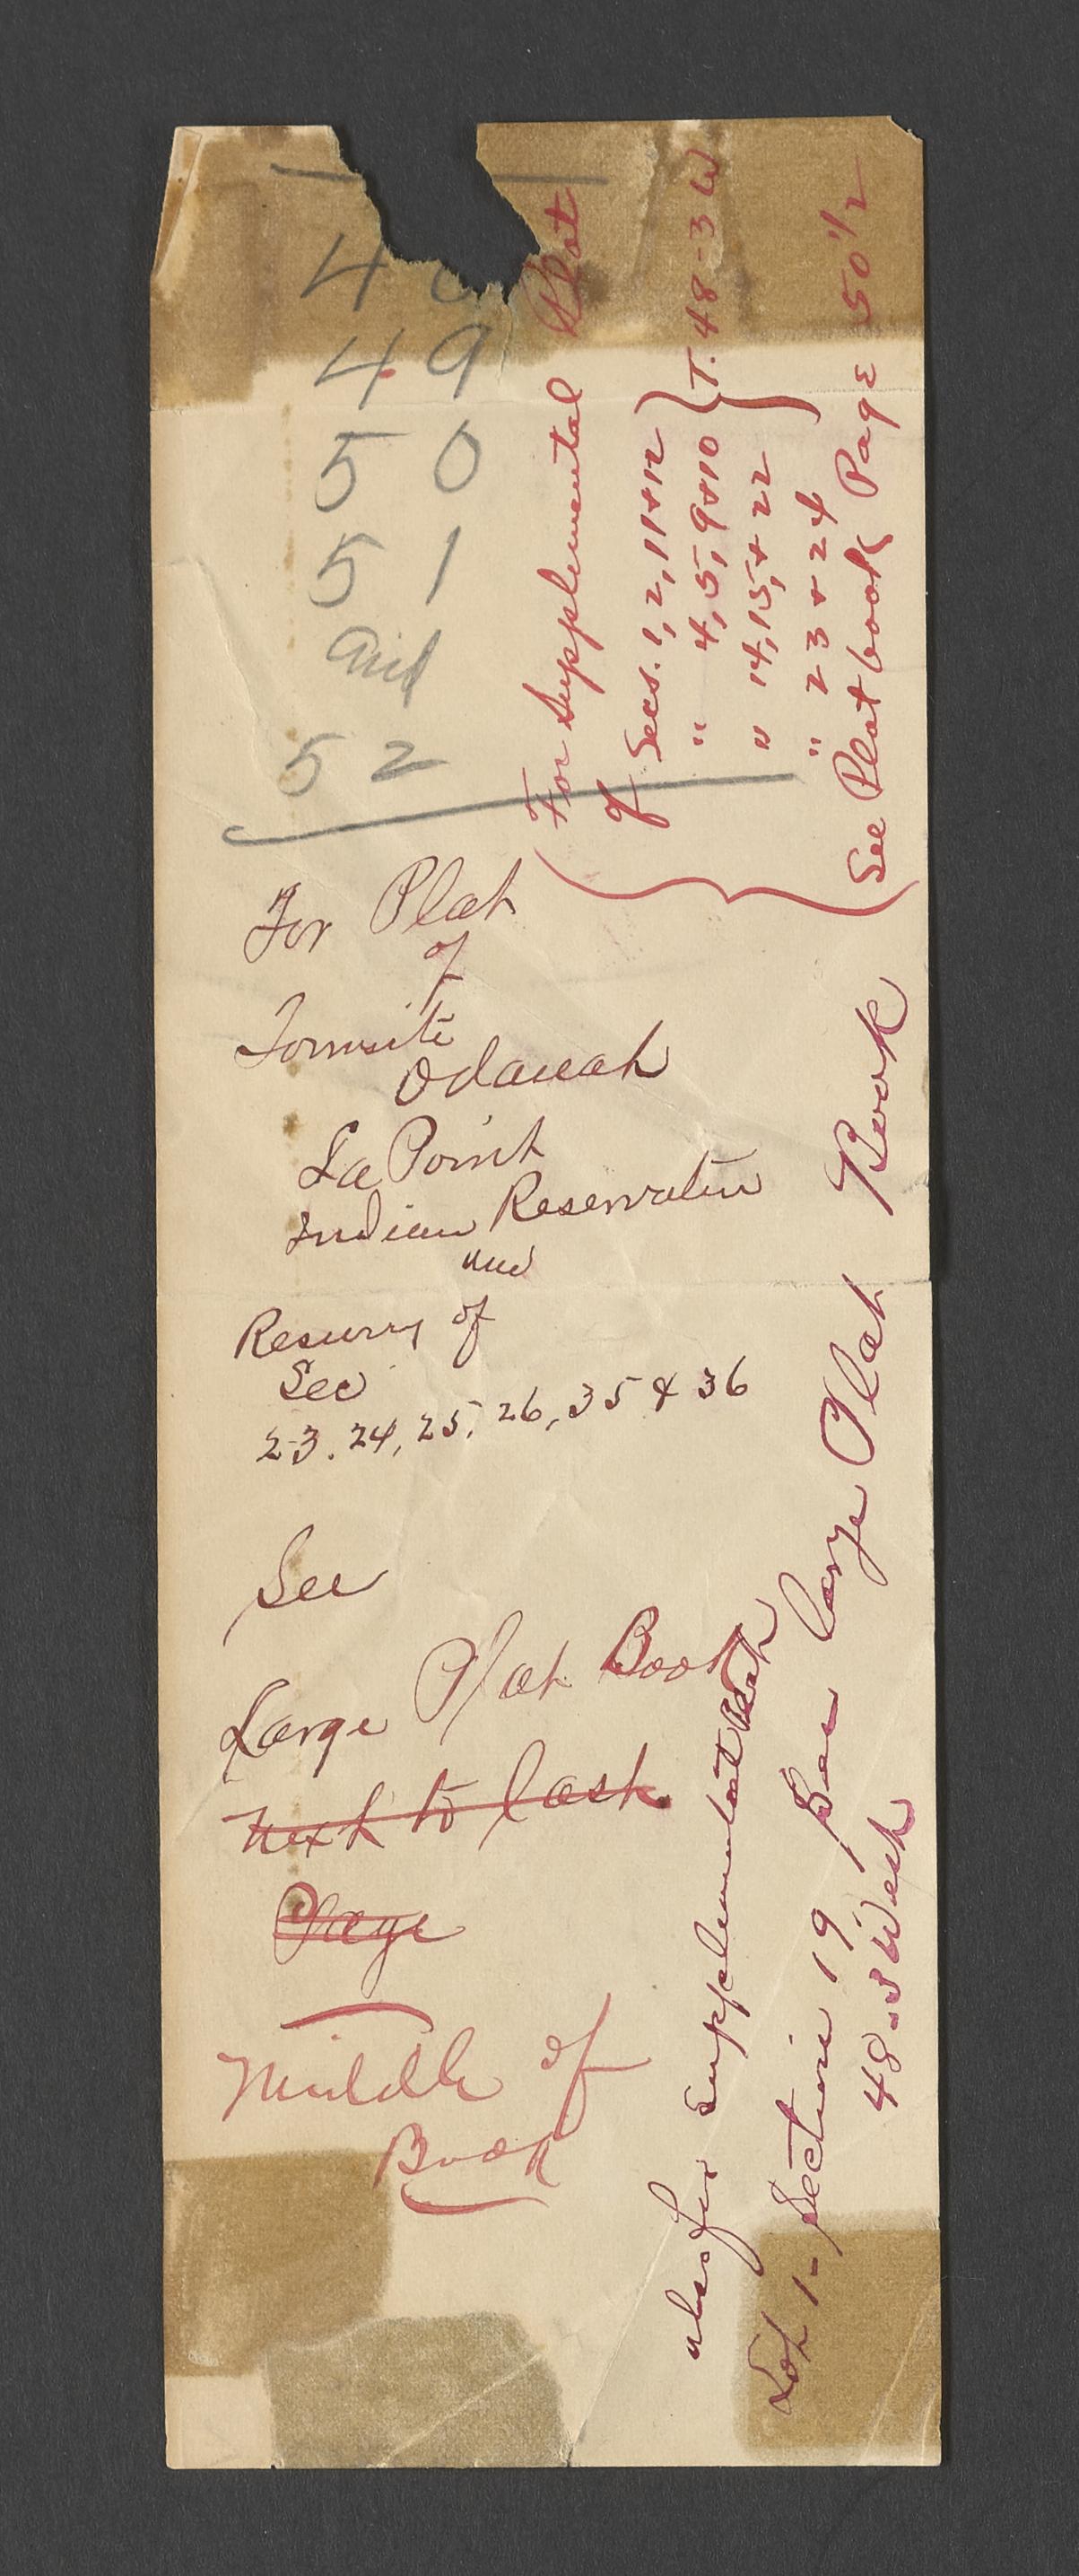 4
49
50
51
and
52
For Plat
of
Townsite
Odanah
La Point
Indian Reservation
and
Resurvy of
Sec
23. 24, 25, 26, 35 & 36
See
Large Plat Book
next to last
Page
Middle of
Book
For Supplemental Plat
of Secs. 1, 2, 11 & 12
" 4, 5, 9 & 10 } T. 48-3 W
" 14, 15, & 22
" 23 & 24
See Plat book Page 50 1/2
also for supplemental Plat
Lot 1 - Section 19 See large Plat Book
48-3 West